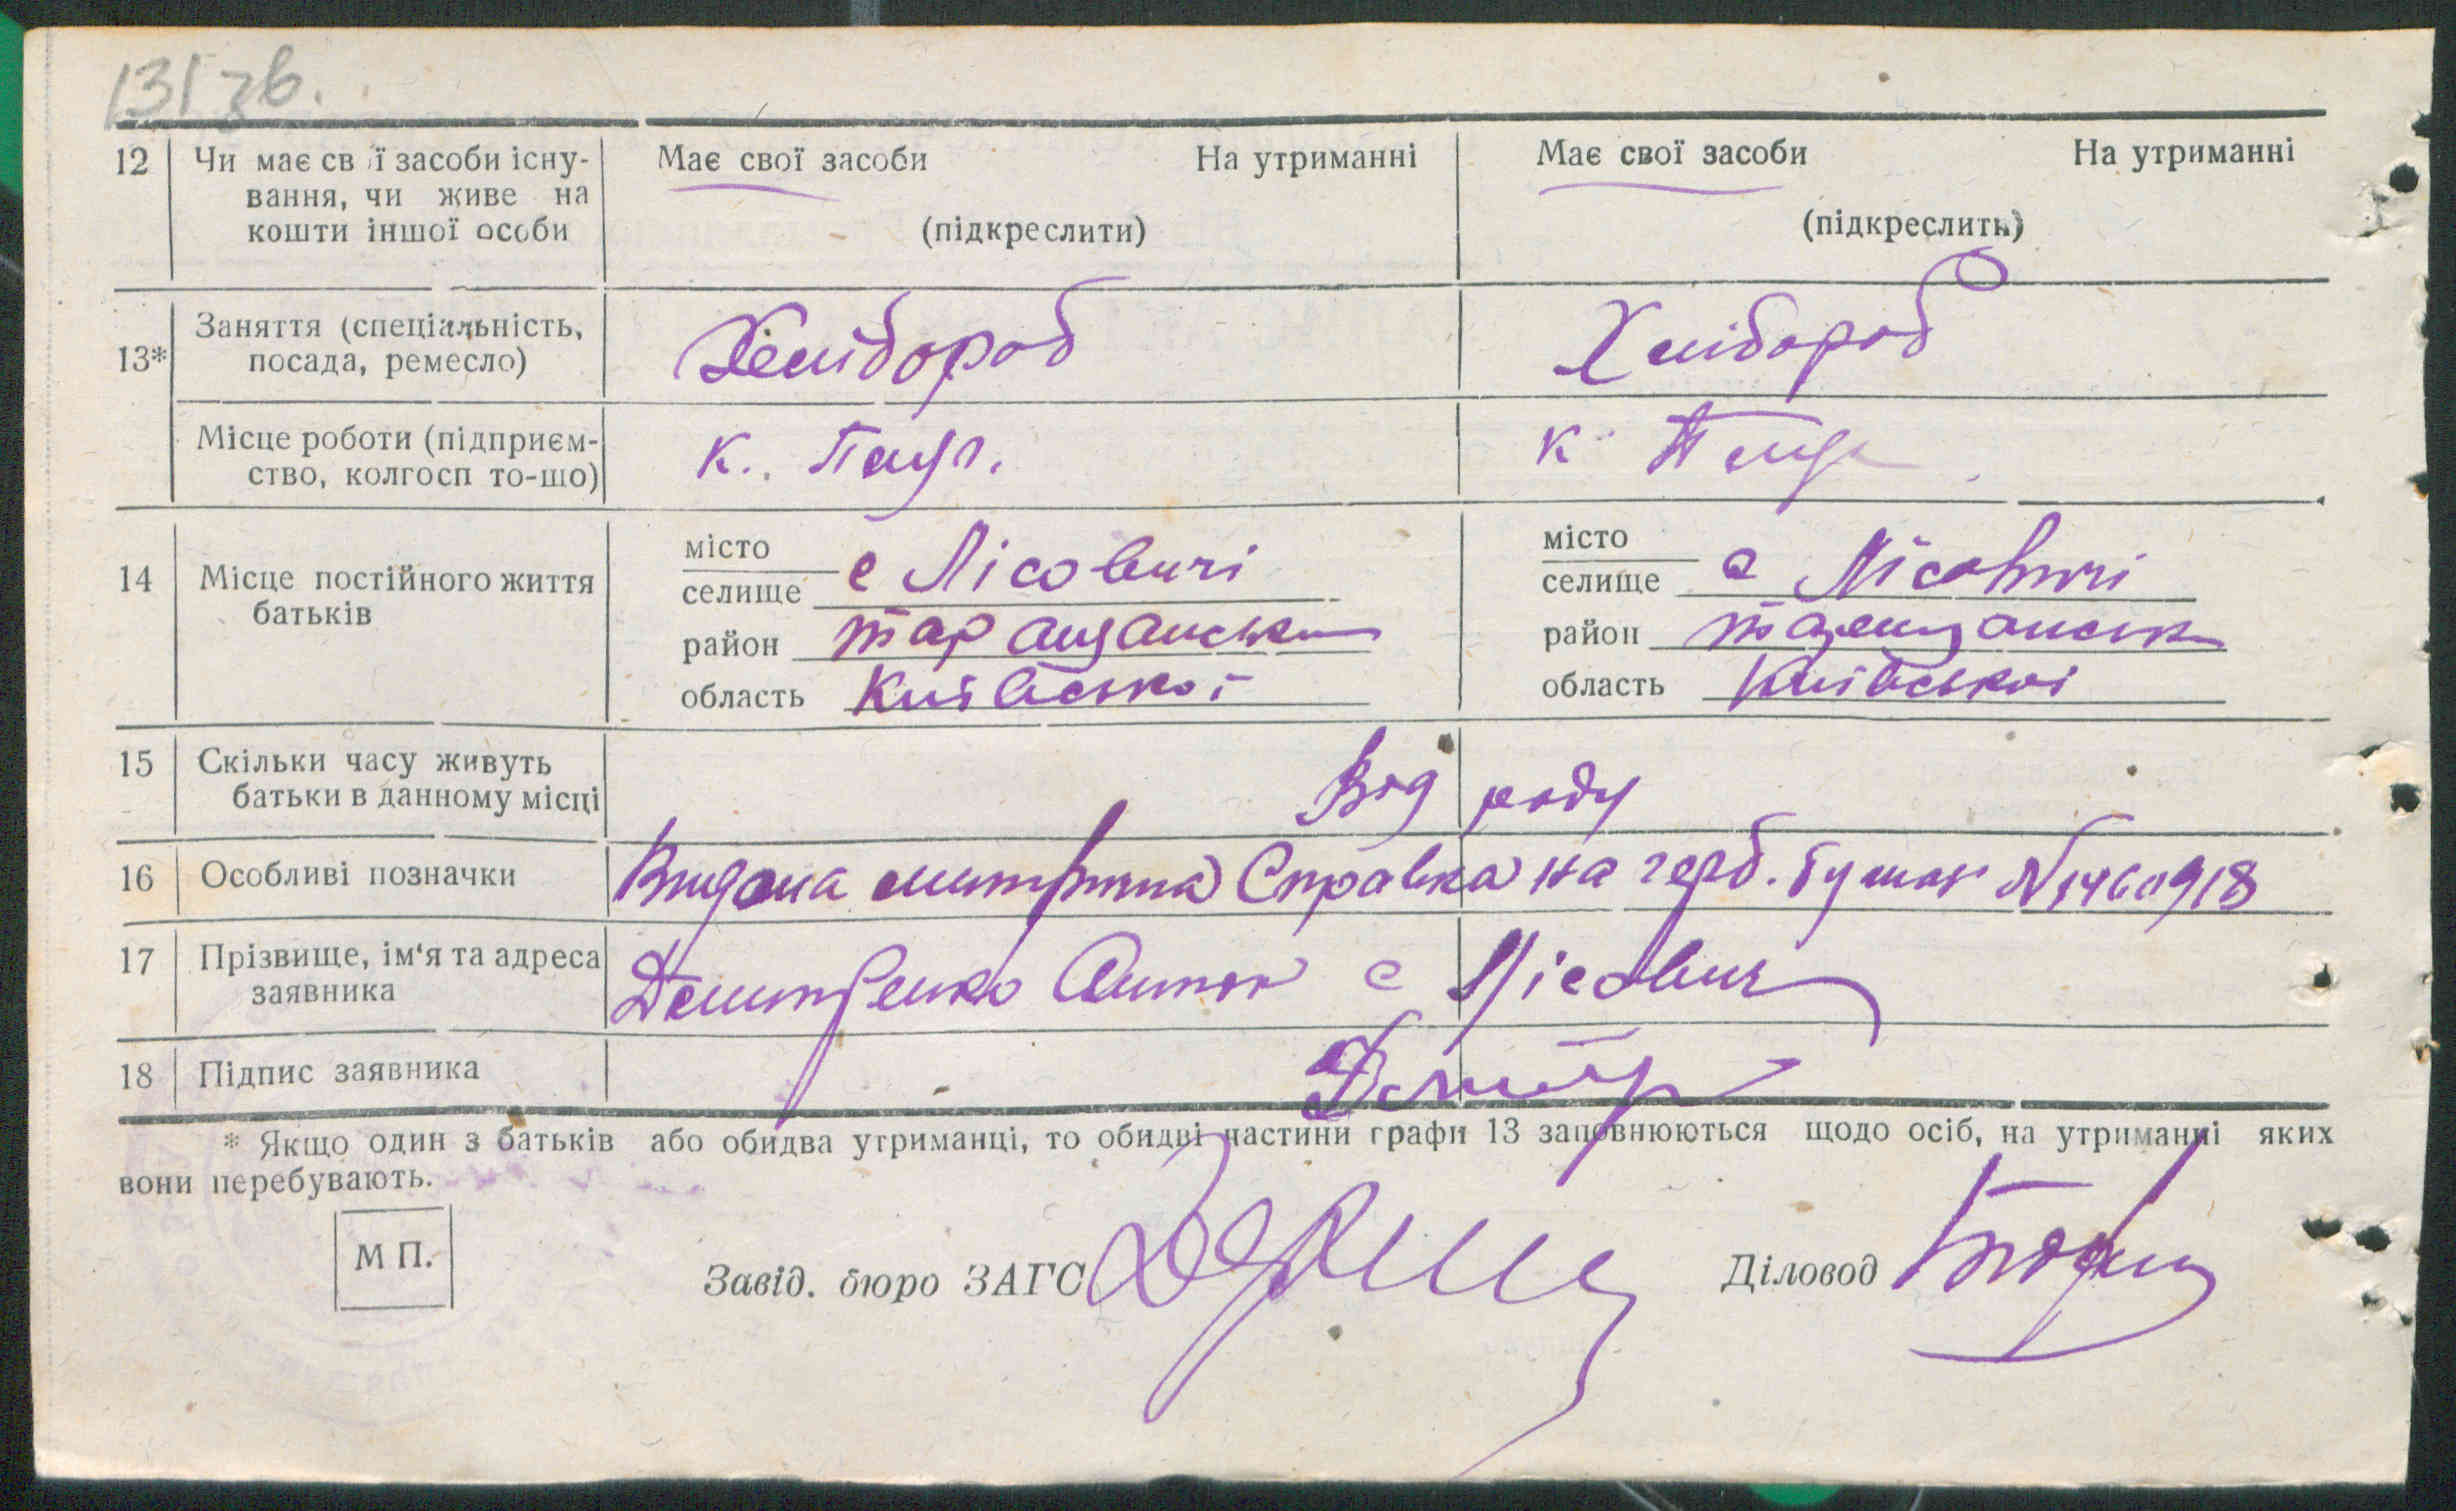 131 зв.
12 Чи має св ї засоби існу- Має свої засоби На утриманні Має свої засоби На утриманні
вання, чи живе на
кошти іншої особи (підкреслити) (підкреслить)
Заняття (спеціальність, Хлібороб Хлібороб
13* посада, ремесло)
Місце роботи (підприєм- к. к
ство, колгосп то-що)
місто с Лісовичі місто с Лісовичі
14 Місце постійного життя селище селище
батьків район таращанськ район таращанськ
область Київської область Київської
15 Скільки часу живуть Від роду
батьки в данному місці
16 Особливі позначки Видана метрична Справка на герб. бумаг №1460918
17 Прізвище, ім'я та адреса Дмитренко Антон с Лісович
заявника
18 Підпис заявника
* Якщо один з батьків або обидва утриманці, то обидві частини графи 13 заповнюються щодо осіб, на утриманні яких
вони перебувають.
М П.
Завід. бюро ЗАГС Діловод